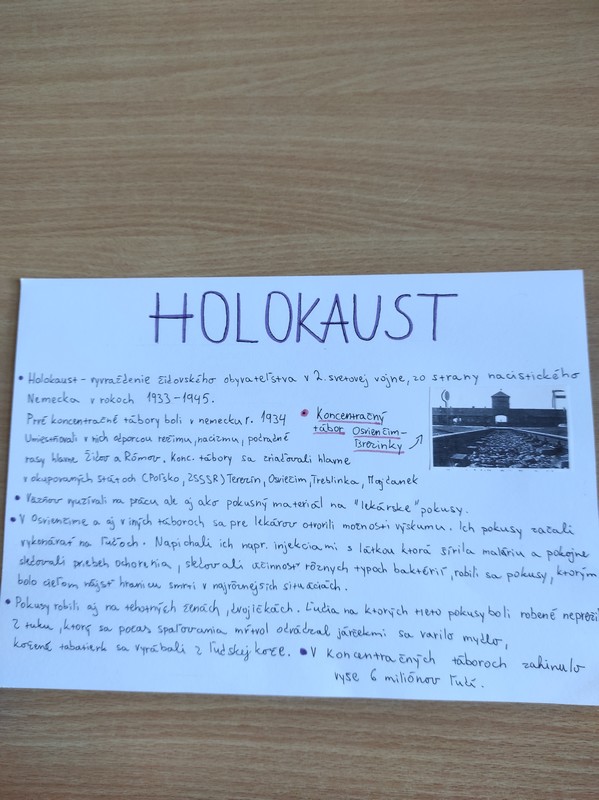 HOLOKAUST
• Holokaust - vyvraždenie židovského obyvateľstva v 2. svetovej vojne, zo strany nacistického
Nemecka v rokoch 1933-1945.
Prvé koncentračné tábory boli v nemecku r. 1934
Umiestňovali v nich odporcou režimu, nacizmu, podradné
rasy hlavne Židov a Rómov. Konc. tábory sa zriaďovali hlavne
v okupovaných štátoch (Poľsko, ZSSSR) Terezín, Osviečim, Treblinka, Majdanek
• Koncentračný
tábor Osvienčim-
Brezinky
• Väzňov využívali na prácu ale aj ako pokusný materiál na "lekárske" pokusy.
• V Osvienčime a aj v iných táboroch sa pre lekárov otvorili možnosti výskumu. Ich pokusy začali
vykonávať na ľuďoch. Napichali ich napr. injekciami s látkou ktorá šírila maláriu a pokojne
sledovali priebeh ochorenia, sledovali účinnosť rôznych typoch baktérií, robili sa pokusy, ktorým
bolo cieľom nájsť hranicu smrti v najrôznejších situáciách.
• Pokusy robili aj na tehotných ženách, dvojičkách. Ľudia na ktorých tieto pokusy boli robené nepreži
Z tuku, ktorý sa počas spaľovania mŕtvol odvádzal járčekmi sa varilo mydlo,
kožené tabatierk sa vyrábali z ľudskej kože. • V koncentračných táboroch zahinulo
vyše 6 miliónov ľudí.